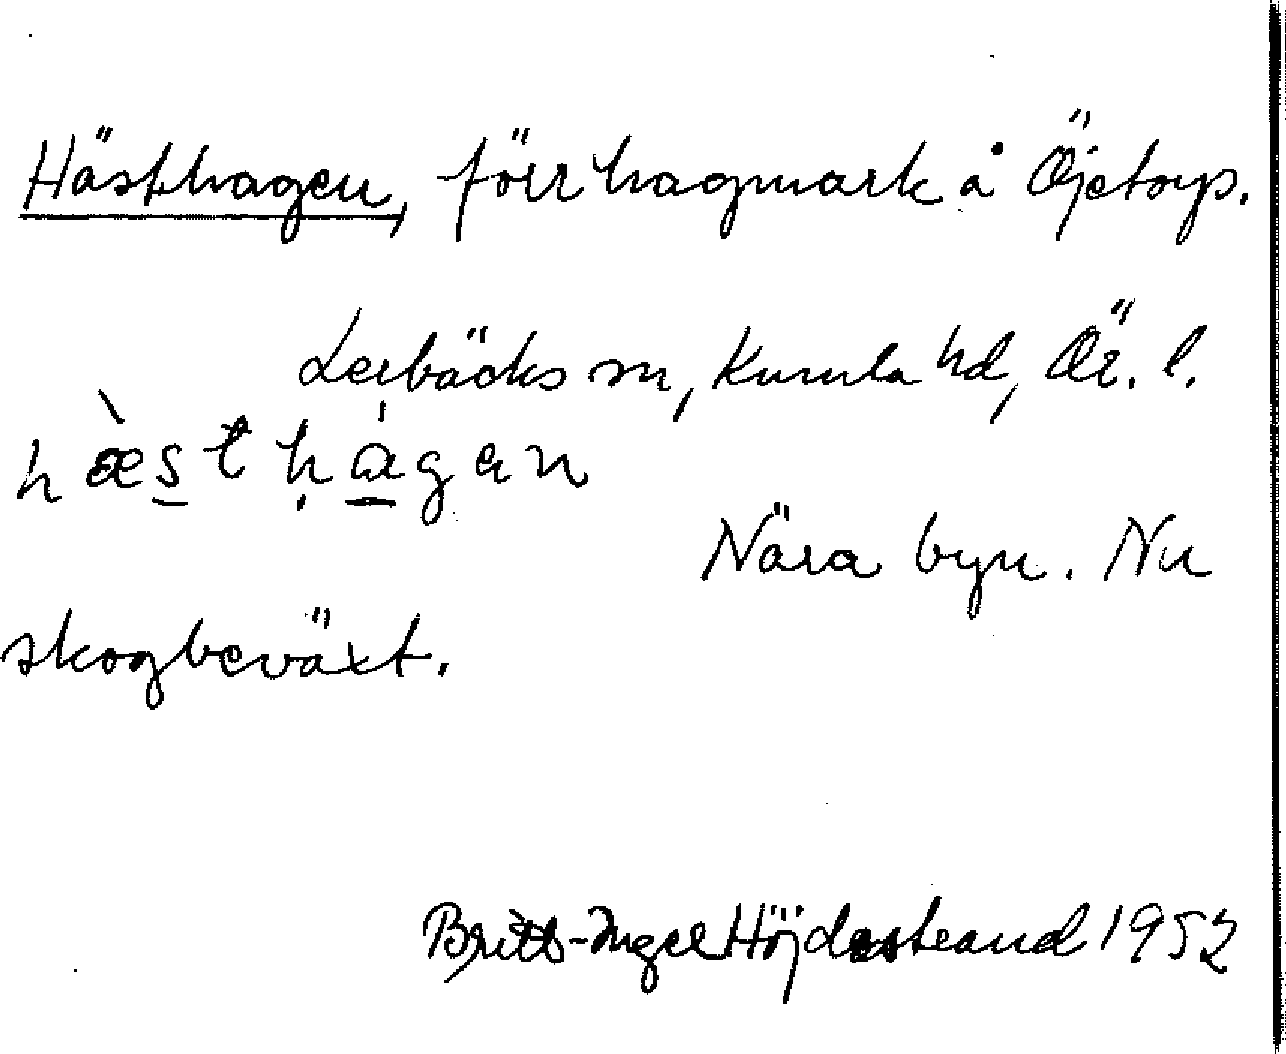 Hästhagen, förr hagmark å Öjetorp.
Lerbäcks sn, Kumla hd, Ör. l.
hæ̀st hạ́gan
Nära byn. Nu
skogbeväxt.
Britt-Inger Höjdestrand 1952